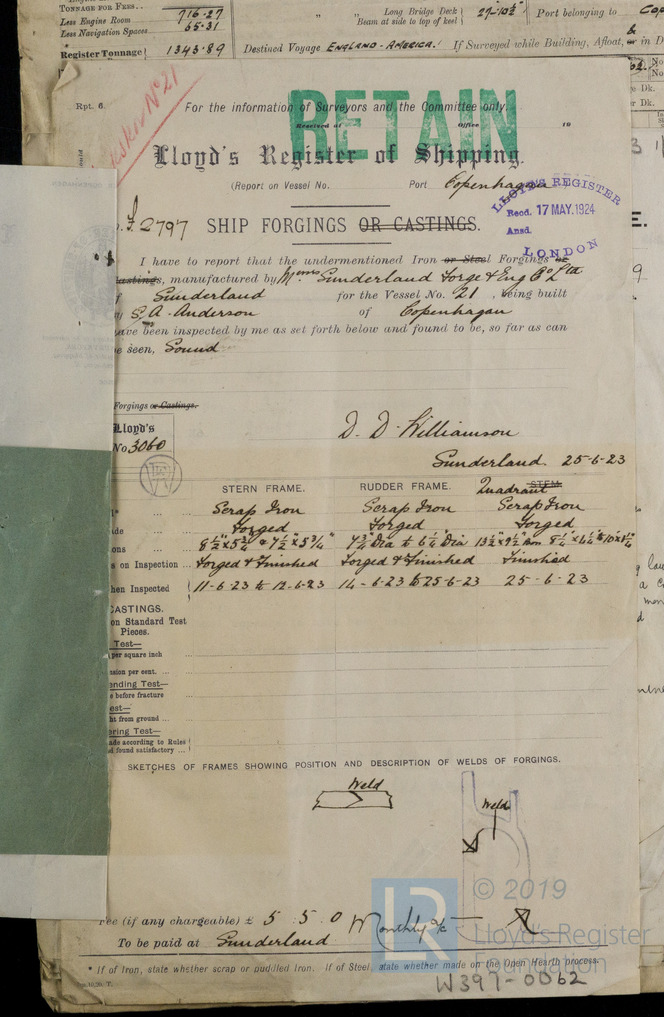 TONNAGE FOR FEES.. 716.27
Less Engine Room
Less Navigation Spaces 65.31
Register Tonnage 1343.89
" " Long Bridge Deck 27-10½"
Beam at side to top of keel
Port belonging to COP
Destined Voyage ENGLAND-AMERICA. If Surveyed while Building, Afloat, & or in D
Rpt. 6.
For the information of Surveyors and the Committee only.
RETAIN
Received at Office 19
Lloyd's Register of Shipping.
(Report on Vessel No. Port Copenhagen
LLOYD'S REGISTER
Recd. 17 MAY. 1924
Ansd.
LONDON
F 2797 SHIP FORGINGS OR CASTINGS.
I have to report that the undermentioned Iron or Steel Forgings or
Castings, manufactured by Messrs Sunderland Forge & Eng Co Ltd
f Sunderland for the Vessel No. 21, being built
y S. A. Anderson of Copenhagen
ave been inspected by me as set forth below and found to be, so far as can
e seen, Sound
Forgings or Castings.
Lloyd's
No 3060
D. D. Williamson
Sunderland. 25-6-23
STERN FRAME. RUDDER FRAME. STEM.
Quadrant
Scrap Iron Scrap Iron Scrap Iron
ade Forged Forged Forged
ons 8½"x5¾" & 7½"x5¾" 7¾" Dia to 6¼" Dia
s on Inspection ... Forged & Finished Forged & Finished Finished
hen Inspected 11-6-23 to 12-6-23 14-6-23 to 25-6-23 25-6-23
CASTINGS.
on Standard Test
Pieces.
Test—
per square inch
nsion per cent. ...
ending Test—
e before fracture
est—
ht from ground ...
ering Test—
ade according to Rules
d found satisfactory ...
SKETCHES OF FRAMES SHOWING POSITION AND DESCRIPTION OF WELDS OF FORGINGS.
Weld
Weld
Fee (if any chargeable) £ 5 5 0 Monthly a/c
To be paid at Sunderland
* If of Iron, state whether scrap or puddled Iron. If of Steel, state whether made on the Open Hearth process.
LR
© 2019
Lloyd's Register
Foundation
W397-0062